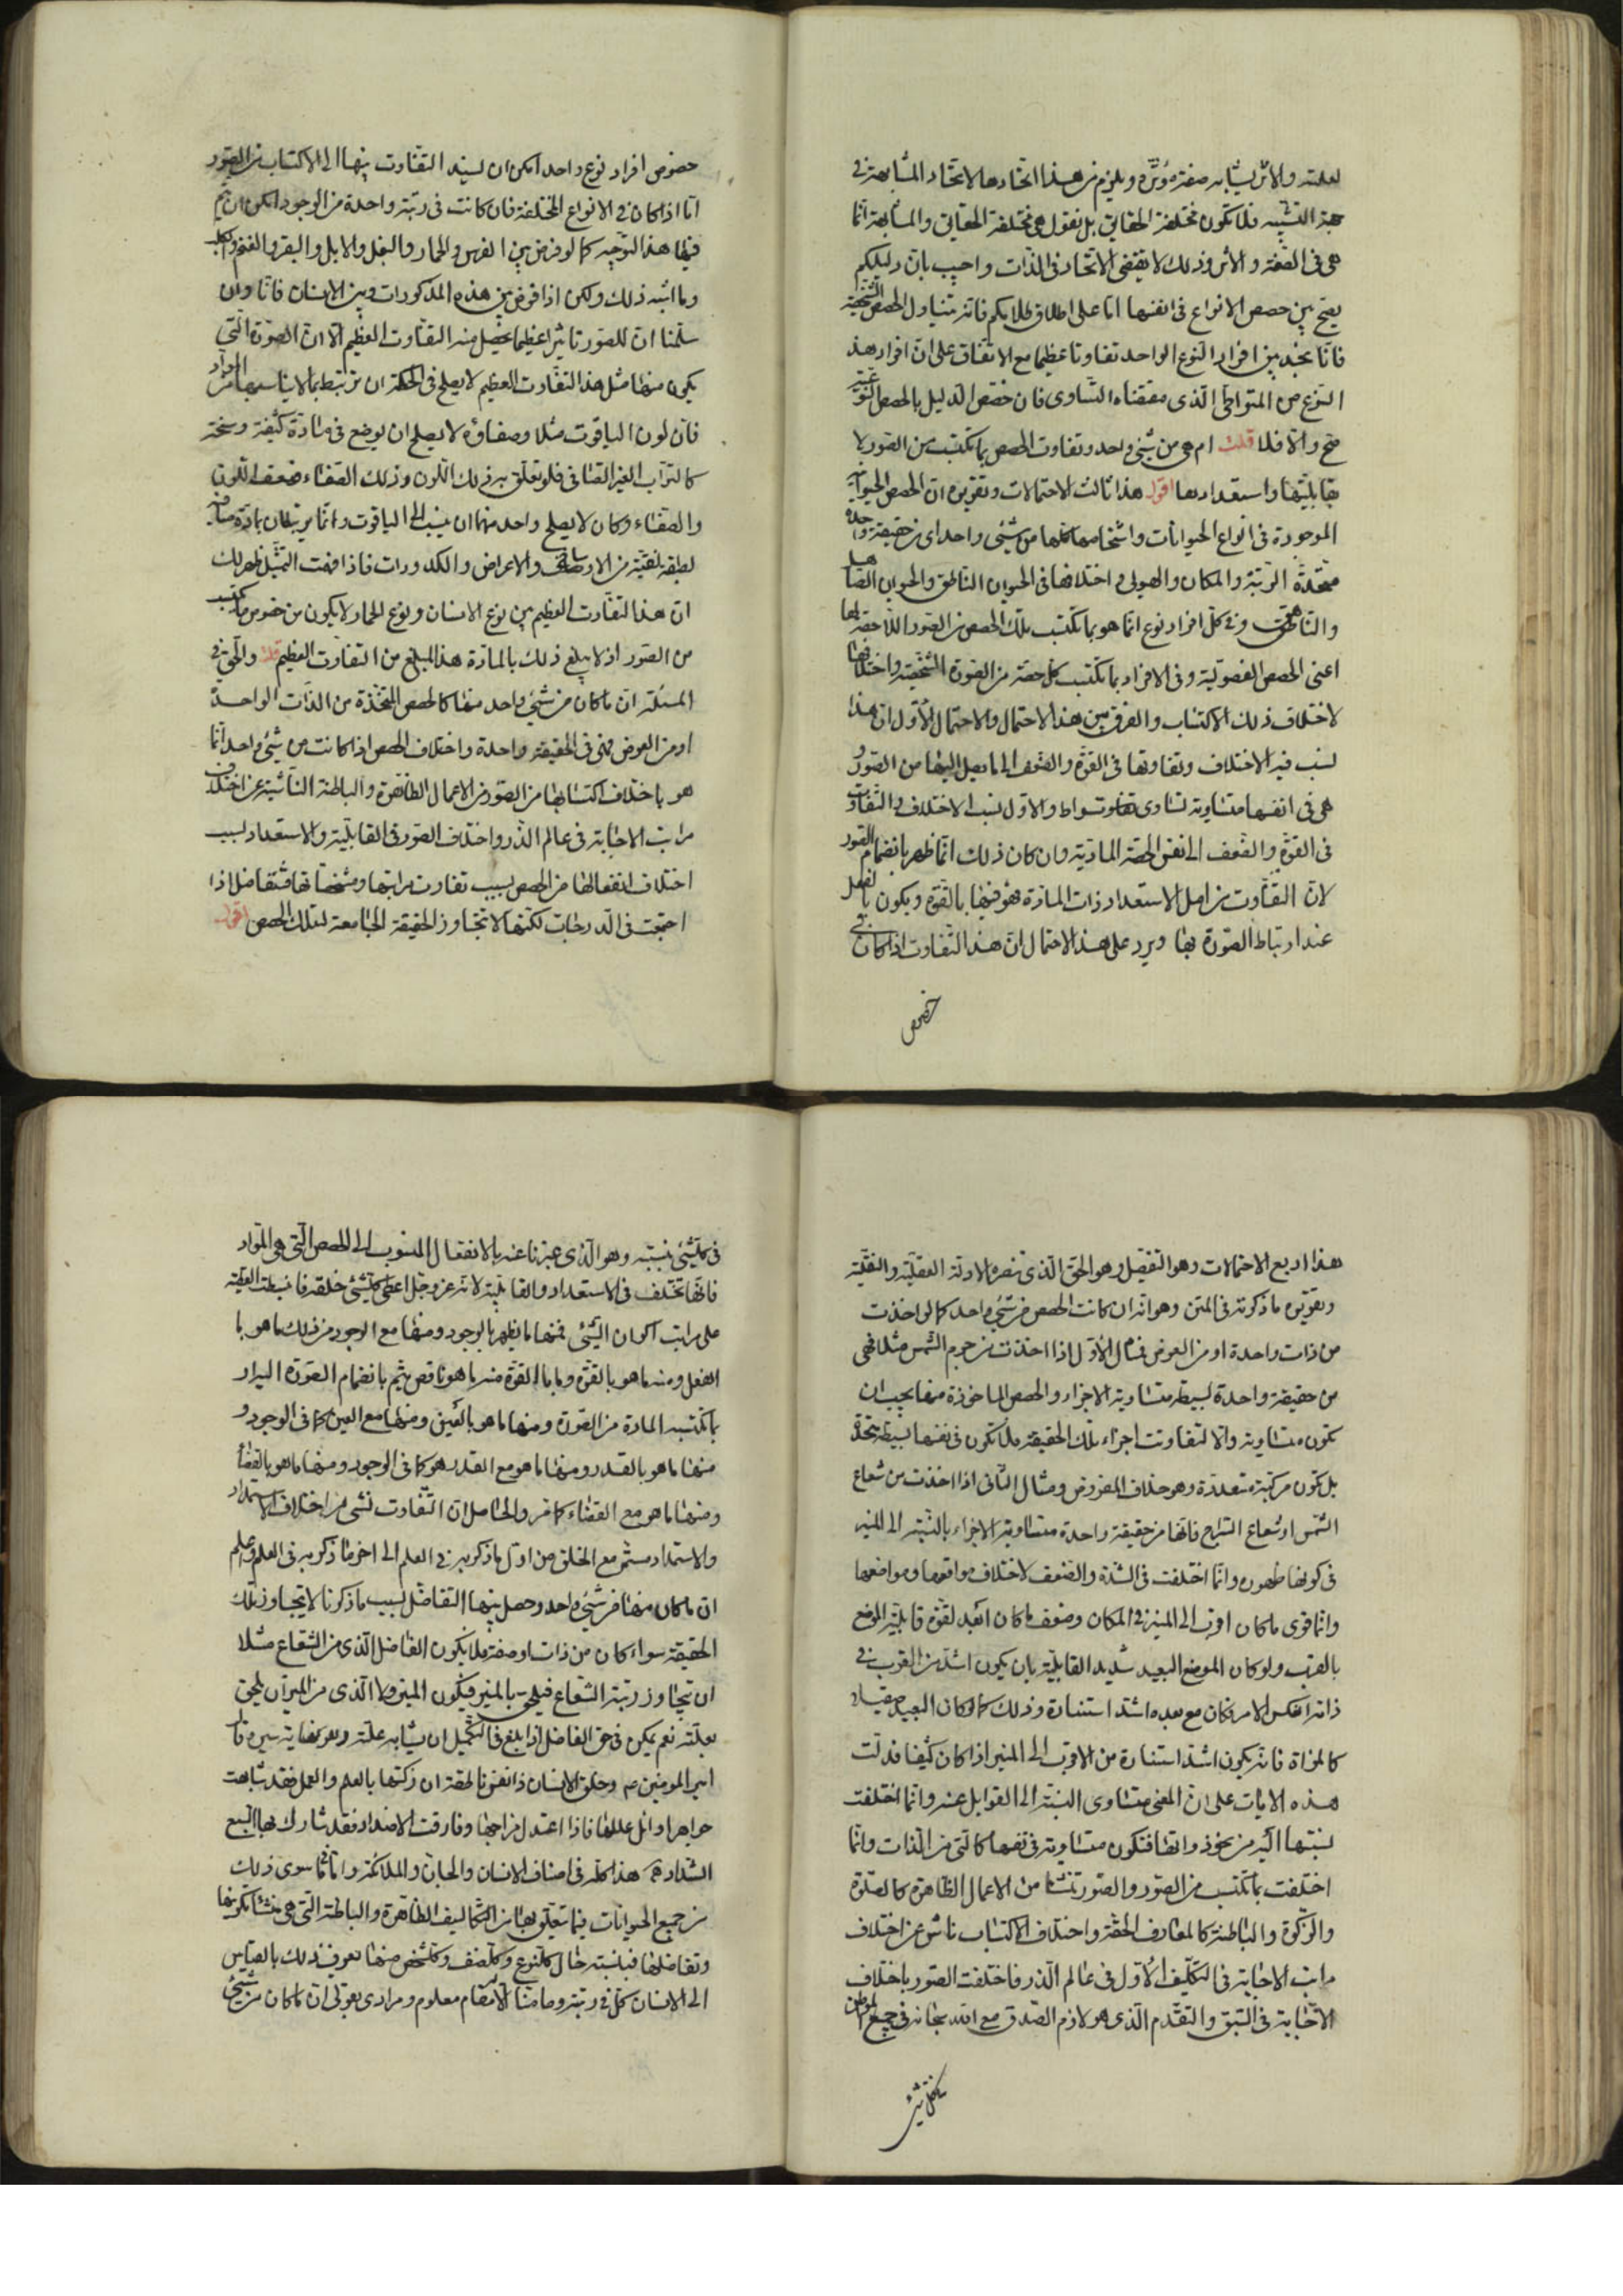 لعلته والاثر يشابه صفة مؤثره ويلزم من هذا اتحادها لاتحاد المشابهة في
جهة التشبيه فلا تكون مختلفة الحقايق بل نقول هي مختلفة الحقايق والمشابهة انما
هي في الصفة والاثر وذلك لا يقتضي الاتحاد في الذات واجيب بان دليلكم
يصح بين حصص الانواع في انفسها اما على اطلاق كلامكم فانه يتناول الحصص الشخصية
فانا نجد بين افراد النوع الواحد تفاوتا عظيما مع الاتفاق على ان افراد هذا
النوع من المتواطي الذي مقتضاه التساوي فان خصص الدليل بالحصص النوعية
صح والا فلا قلت ام هي من شيئ واحد وتفاوت الحصص بما تكتسب من الصور لا
بقابليتها واستعدادها اقول هذا ثالث الاحتمالات وتقريره ان الحصص الحيوانية
الموجودة في انواع الحيوانات واشخاصها كلها من شيئ واحد اي من حقيقة واحدة
متحدة الرتبة والمكان والهيولى واختلافها في الحيوان الناطق والحيوان الصاهل
والناهق وفي كل افراد نوع انما هو بما تكتسب تلك الحصص من الصور اللاحقة لها
اعني الحصص الفصولية وفي الافراد بما تكتسب كل حصة من الصورة الشخصية واختلافها
لاختلاف ذلك الاكتساب والفرق بين هذا الاحتمال والاحتمال الاول ان هذا
نسب فيه الاختلاف وتفاوتها في القوة والضعف الى ما يصل اليها من الصور و
هي في انفسها متساوية تساوي تواطو والاول نسب الاختلاف والتفاوت
في القوة والضعف الى نفس الحصة المادية وان كان ذلك انما ظهر بانضمام الصور
لان التفاوت من اصل الاستعداد ذات المادة فهو فيها بالقوة ويكون بالفعل
عند ارتباط الصورة بها ويرد على هذا الاحتمال ان هذا التفاوت اذا كان في
خصوص
خصوص افراد نوع واحد امكن ان يسند التفاوت بينها الى الاكتساب من الصور
اما اذا كان في الانواع المختلفة فان كانت في رتبة واحدة من الوجود امكن ان يتم
فيها هذا التوجيه كما لو فرض بين الفرس والحمار والبغل والابل والبقر والغنم والكلب
وما اشبه ذلك ولكن اذا فرض بين هذه المذكورات وبين الانسان فانا وان
سلمنا ان للصور تاثيرا عظيما يحصل منه التفاوت العظيم الا ان الصورة التي
يكون منها مثل هذا التفاوت العظيم لا يصلح في الحكمة ان ترتبط بما لا يناسبها من المواد
فان لون الياقوت مثلا وصفاؤه لا يصلح ان يوضع في مادة كثيفة وسخة
كالتراب الغير الصافي فلو تعلق به ذلك اللون وذلك الصفاء ضعف اللون
والصفاء وكان لا يصلح واحد منهما ان ينسب الى الياقوت وانما يرتبطان بمادة صافية
لطيفة نقية من الاوساخ والاعراض والكدورات فاذا فهمت التمثيل ظهر لك
ان هذا التفاوت العظيم بين نوع الانسان ونوع الحمار لا يكون من خصوص ما يكتسب
من الصور اذ لا يبلغ ذلك بالمادة هذا المبلغ من التفاوت العظيم قلت والحق في
المسئلة ان ما كان من شيئ واحد منها كالحصص المتخذة من الذات الواحدة
او من العرض فهي في الحقيقة واحدة واختلاف الحصص اذا كانت من شيئ واحد انما
هو باختلاف اكتسابها من الصور من الاعمال الظاهرة والباطنة الناشئة عن اختلاف
مراتب الاجابة في عالم الذر واختلاف الصور في القابلية والاستعداد بسبب
اختلاف انفعالها من الحصص بسبب تفاوت مراتبها ومشخصاتها فتتفاضل اذا
اجتمعت في الدرجات لكنها لا تتجاوز الحقيقة الجامعة لتلك الحصص اقول
هذا رابع الاحتمالات وهو التفصيل وهو الحق الذي تنصره الادلة العقلية والنقلية
وتقريره ما ذكرته في المتن وهو انه ان كانت الحصص من شيئ واحد كما لو اخذت
من ذات واحدة او من العرض فمثال الاول اذا اخذت من جرم الشمس مثلا فهي
من حقيقة واحدة بسيطة متساوية الاجزاء والحصص الماخوذة منها يجب ان
تكون متساوية والا لتفاوتت اجزاء تلك الحقيقة فلا تكون في نفسها بسيطة متحدة
بل تكون مركبة متعددة وهو خلاف المفروض ومثال الثاني اذا اخذت من شعاع
الشمس او شعاع السراج فانها من حقيقة واحدة متساوية الاجزاء بالنسبة الى المنير
في كونها ظهوره وانما اختلفت في الشدة والضعف لاختلاف مواقعها ومواضعها
وانما قوي ما كان اقرب الى المنير في المكان وضعف ما كان ابعد لقوة قابلية الموضع
بالقرب ولو كان الموضع البعيد شديد القابلية بان يكون اشد من القريب في
ذاته انعكس الامر فكان مع بعده اشد استنارة وذلك كما لو كان البعيد صقيلا
كالمراة فانه يكون اشد استنارة من الاقرب الى المنير اذا كان كثيفا فدلت
هذه الايات على ان المعنى متساوي النسبة الى القوابل عنه وانما اختلفت
نسبتها اليه من نحو ذواتها فتكون متساوية في نفسها كالتي من الذات وانما
اختلفت بما تكتسب من الصور والصور تنشأ من الاعمال الظاهرة كالصلوة
والزكوة والباطنة كالمعارف الحقة واختلاف الاكتساب ناش عن اختلاف
مراتب الاجابة في التكليف الاول في عالم الذر فاختلفت الصور باختلاف
الاجابة في السبق والتقدم الذي هو لازم الصدق مع الله سبحانه في جميع المواطن
في كل شيئ
في كل شيئ بنسبته وهو الذي عبرنا عنه بالانفعال المنسوب الى الحصص التي هي المواد
فانها تختلف في الاستعداد والقابلية لانه عز وجل اعطى كل شيئ خلقه فانبسطت العطية
على مراتب اكوان الشيئ فمنها ما يظهر بالوجود ومنها مع الوجود من ذلك ما هو با
لفعل ومنه ما هو بالقوة وما بالقوة منه ما هو ناقص يتم بانضمام الصورة اليه او
بما تكتسبه المادة من الصورة ومنها ما هو بالعين ومنها مع العين كما في الوجود و
منها ما هو بالقدر ومنها ما هو مع القدر هو كما في الوجود ومنها ما هو بالقضاء
ومنها ما هو مع القضاء كما مر والحاصل ان التفاوت نشئ من اختلاف الاستمداد
والاستمداد مستمر مع الخلق من اول ما ذكر به في العلم الى اخر ما ذكر به في العلم واعلم
ان ما كان منها من شيئ واحد وحصل بينها التفاضل بسبب ما ذكرنا لا يتجاوز تلك
الحقيقة سواء كان من ذات او صفة فلا يكون الفاضل الذي من الشعاع مثلا
ان يتجاوز رتبة الشعاع فيلحق بالمنير فيكون المنير ولا الذي من المنير ان يلحق
بعلته نعم يمكن في حق الفاضل اذا بلغ في التكميل ان يشابه علته
امير المومنين ع وخلق الانسان ذا نفس ناطقة ان زكتها بالعلم والعمل فقد شابهت
جواهر اوائل عللها فاذا اعتدل مزاجها وفارقت الاضداد فقد شارك بها السبع
الشداد هذا كله في اصناف الانسان والجان والملائكة واما ما سوى ذلك
من جميع الحيوانات فيما يتعلق بها من التكاليف الظاهرة والباطنة التي هي منشأ تكوينها
وتفاضلها فبنسبة حال كل نوع وكل صنف وكل شخص منها يعرف ذلك بالقياس
الى الانسان كل في رتبته وما منا الا له مقام معلوم ومرادي بقولي ان ما كان من شيئ